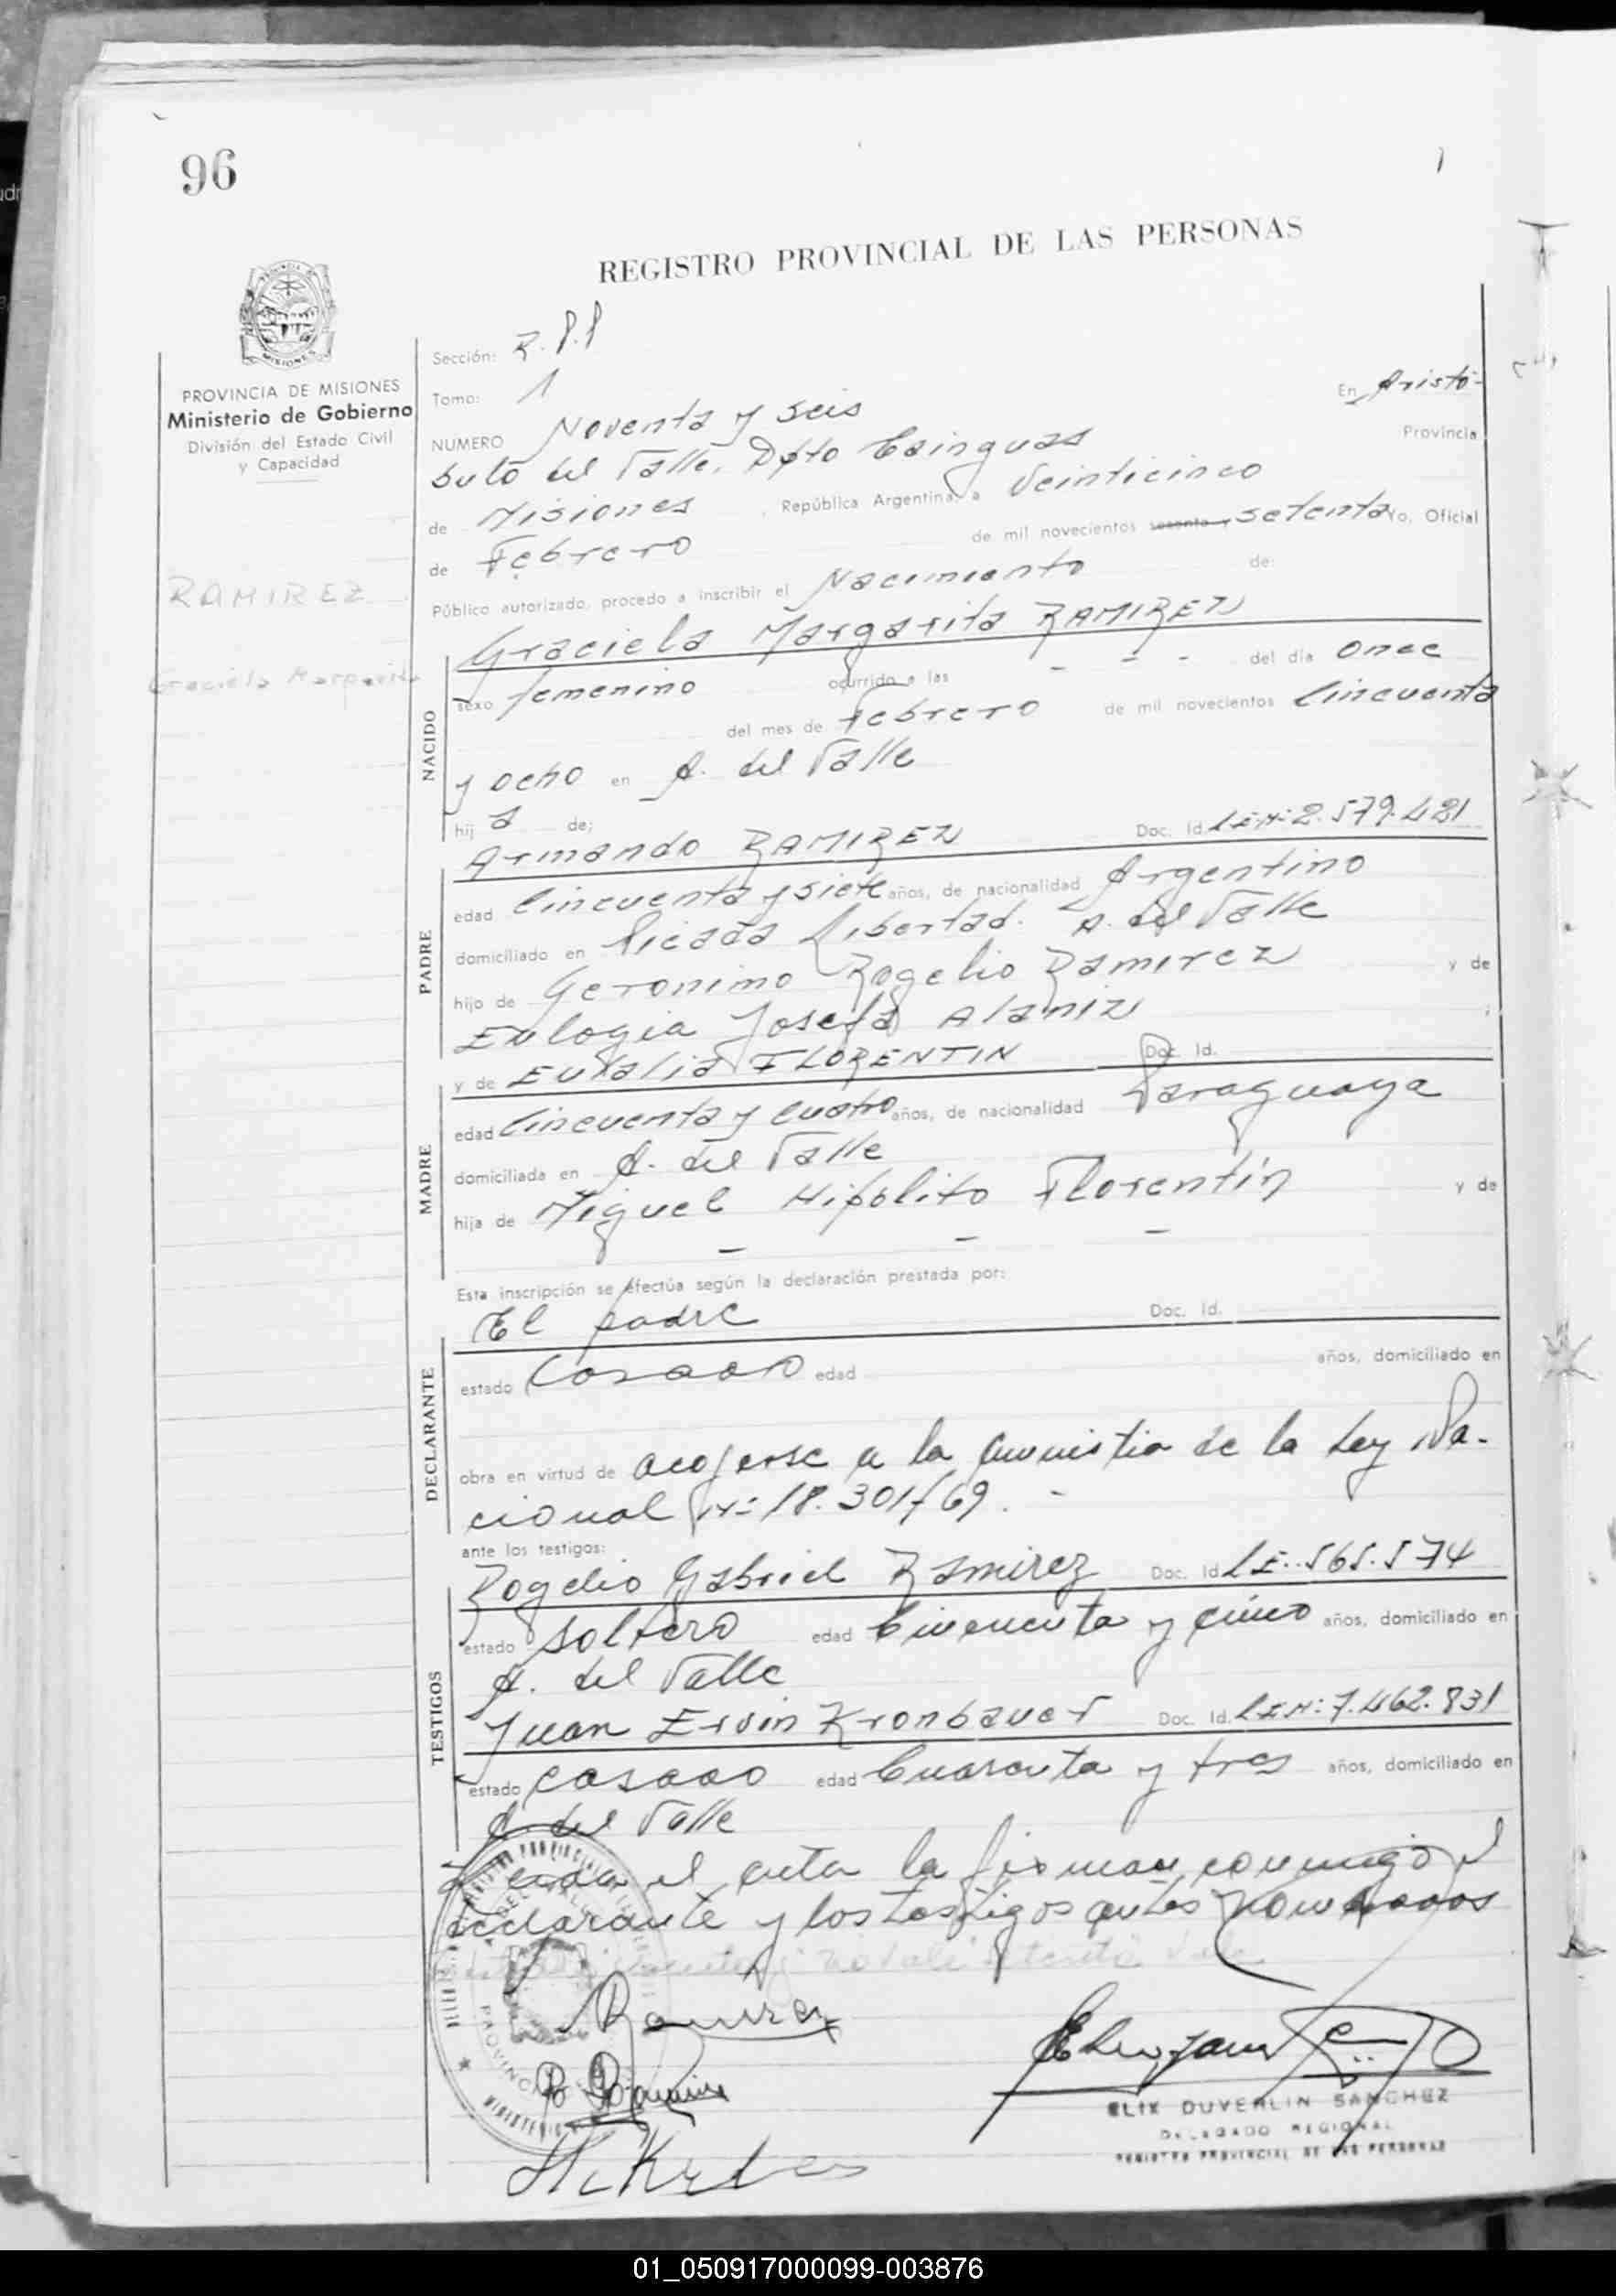 96
REGISTRO PROVINCIAL DE LAS PERSONAS
PROVINCIA DE MISIONES
Ministerio de Gobierno
División del Estado Civil
y Capacidad
RAMIREZ
Graciela Margarita
Sección: R.P.P
Tomo: 1 En Aristó-
NUMERO Noventa y seis Provincia
bulo del Valle. Dpto Cainguas
de Misiones, República Argentina, a Veinticinco
de Febrero de mil novecientos sesenta y setenta Yo, Oficial
Público autorizado, procedo a inscribir el Nacimiento de:
Graciela Margarita RAMIREZ
NACIDO
sexo femenino ocurrido a las - - - del día Once
del mes de Febrero de mil novecientos Cincuenta
y ocho en A. del Valle
hij a de;
Armando RAMIREZ Doc. Id. L.E.Nº 2.579.421
PADRE
edad Cincuenta y siete años, de nacionalidad Argentino
domiciliado en Picada Libertad. A. del Valle
hijo de Geronimo Rogelio Ramirez y de
Eulogia Josefa Alaniz ;
y de Eulalia FLORENTIN Doc. Id.
MADRE
edad Cincuenta y cuatro años, de nacionalidad Paraguaya
domiciliada en A. del Valle
hija de Miguel Hipólito Florentín y de
- - -
Esta inscripción se efectúa según la declaración prestada por:
El padre Doc. Id.
DECLARANTE
estado Casado edad años, domiciliado en
obra en virtud de acojerse a la amnistia de la Ley Na-
cional Nº 18.301/69. -
ante los testigos:
Rogelio Gabriel Ramirez Doc. Id. L.E. 565.574
TESTIGOS
estado soltero edad Cincuenta y cinco años, domiciliado en
A. del Valle
Juan Ervin Kronbauer Doc. Id. L.E.Nº 7.462.831
estado casado edad Cuarenta y tres años, domiciliado en
A. del Valle
Leida el acta la firman conmigo el
declarante y los testigos antes nombrados
Ramirez
R. Ramirez
ELIX DUVERLIN SANCHEZ
DELEGADO REGIONAL
REGISTRO PROVINCIAL DE LAS PERSONAS
01_050917000099-003876